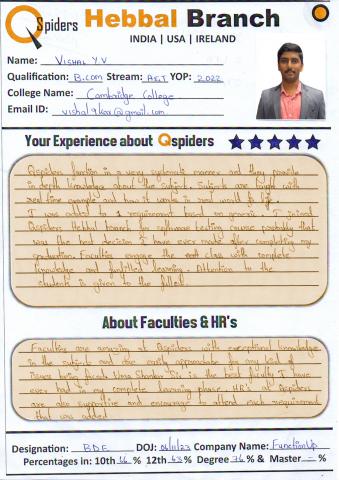 QSpiders Hebbal Branch
INDIA | USA | IRELAND
Name: Vishal Y.V
Qualification: B.com Stream: A&T YOP: 2022
College Name: Cambridge College
Email ID: @gmail.com
Your Experience about Qspiders
Qspiders function in a very systematic manner and they provide
in depth knowledge about the subject. Subjects are taught with
real time example and how it works in real world
I was added to 1 requirement based on I joined
Qspiders Hebbal branch for software testing course probably that
was the best decision I have ever made after completing my
graduation. Faculties engage the class with complete
knowledge and funfilled learning. Attention to the
students is given to the
About Faculties & HR's
Faculties are amazing at Qspiders with exceptional knowledge
in the subject and are easily approachable for any kind of
issues being faced. Uma Shankar Sir is the best faculty I have
ever had in my complete learning phase. HR's at Qspiders
are also supportive and encourage to attend each requirement
that was added
Designation: BDE DOJ: 06/11/23 Company Name: FunctionUp
Percentages in: 10th % 12th 63 % Degree 76 % & Master - %